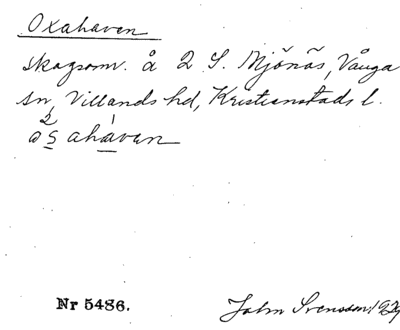 Oxahaven
skogsomr. å 2 S. Mjönäs, Vånga
sn, Villands hd, Kristianstads l.
2 1
osahaven
Nr 5486.
John Svensson 1929